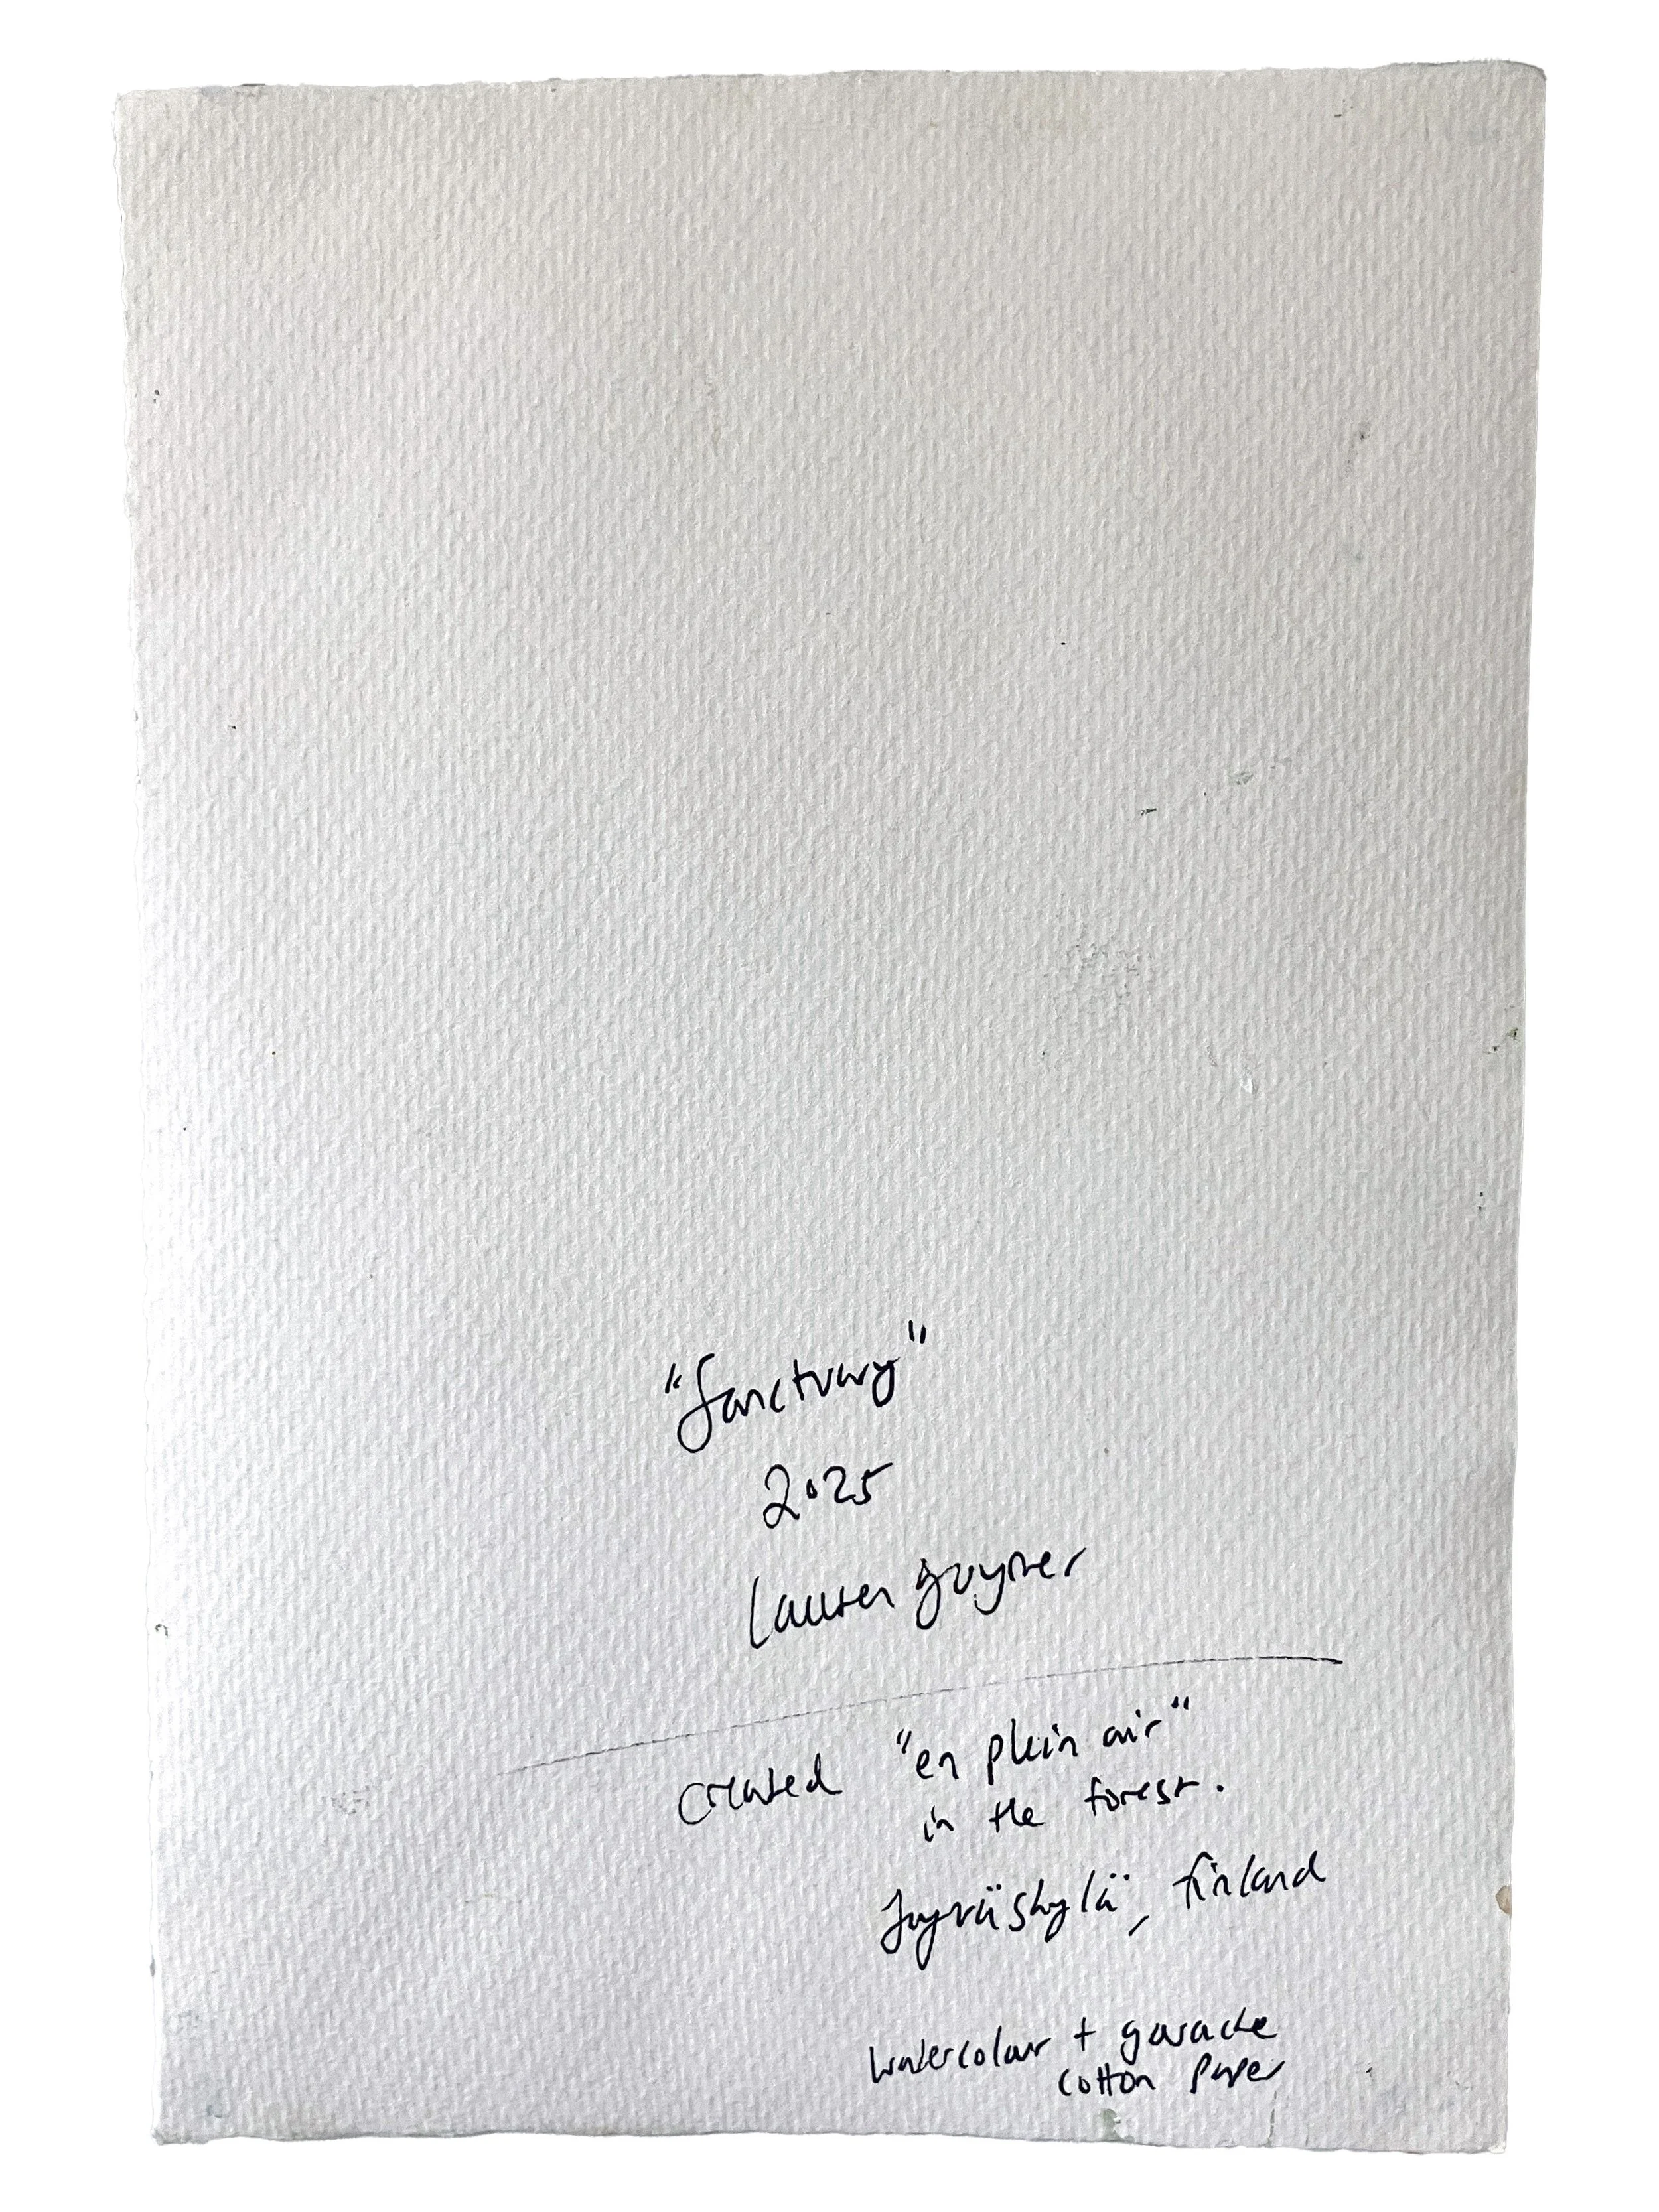 "Sanctuary"
2025
Lauren Guymer
created "en plein air"
in the forest.
Jyväskylä, Finland
watercolour + gouache
cotton paper